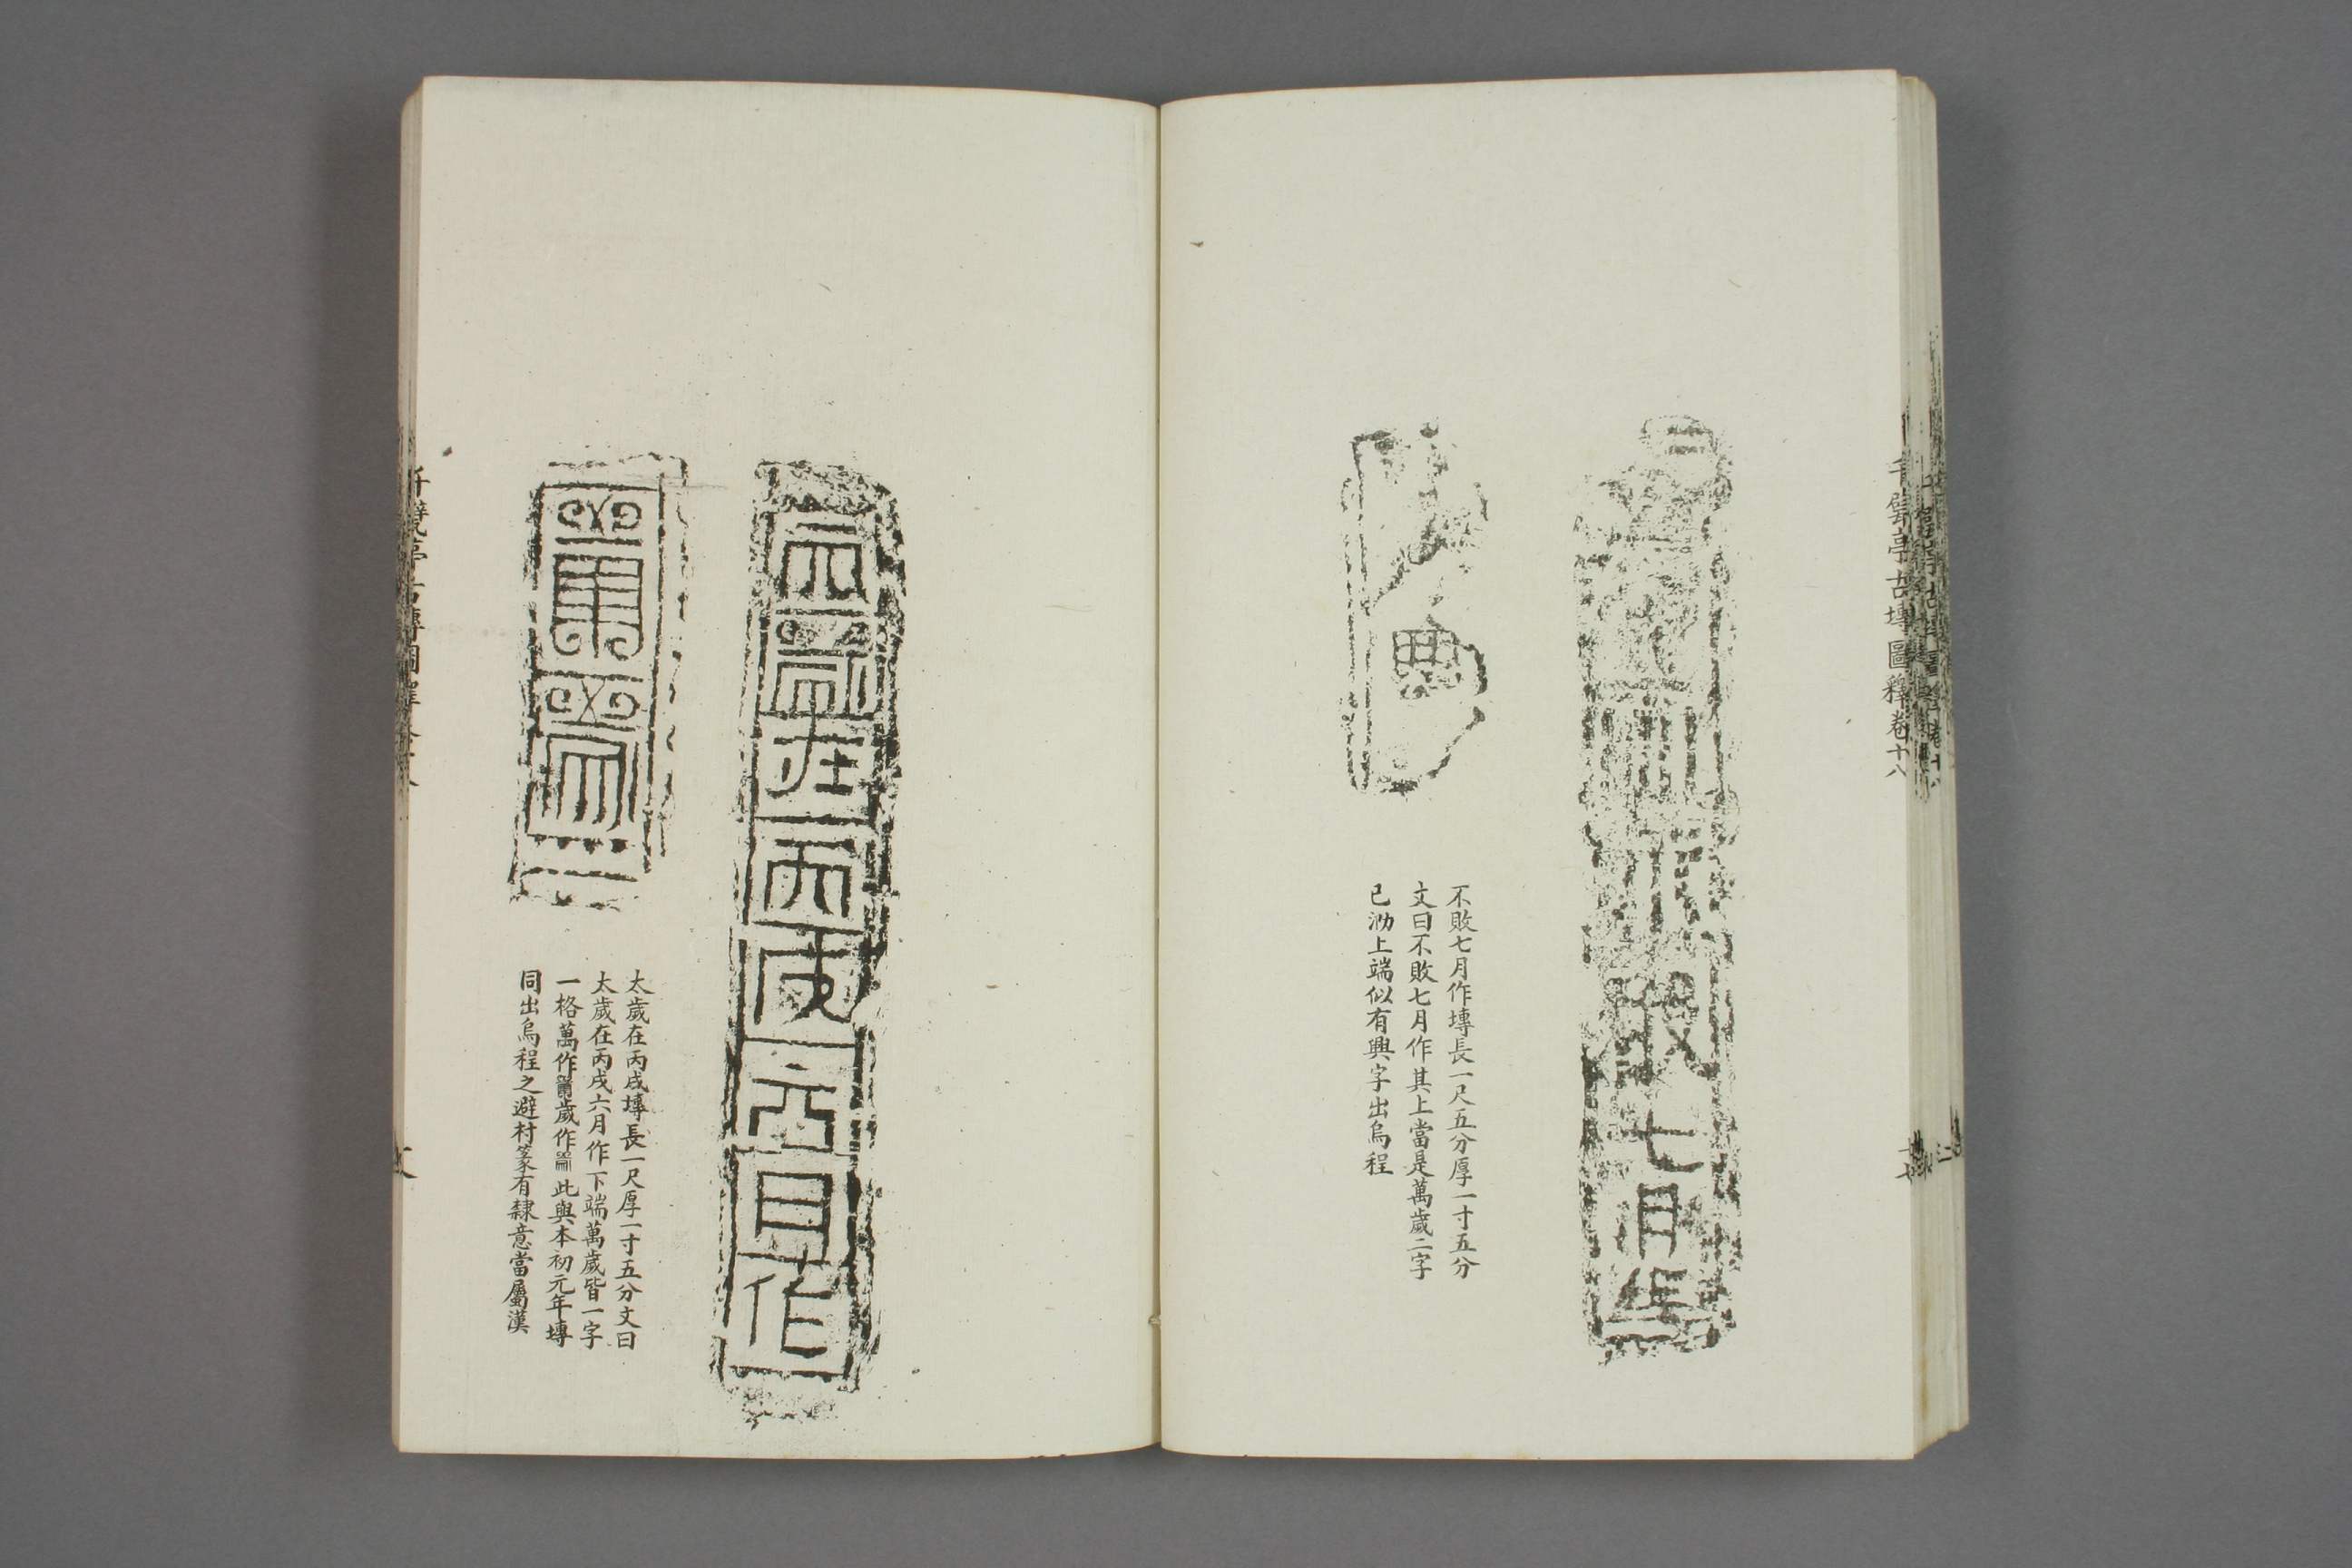 千甓亭古塼圖釋卷十八
不敗七月作
不敗七月作塼長一尺五分厚一寸五分
文曰不敗七月作其上當是萬歲二字
已泐上端似有興字出烏程
太歲在丙戌六月作
萬歲
太歲在丙戌塼長一尺厚一寸五分文曰
太歲在丙戌六月作下端萬歲皆一字
一格萬作歲作此與本初元年塼
同出烏程之避村篆有隸意當屬漢